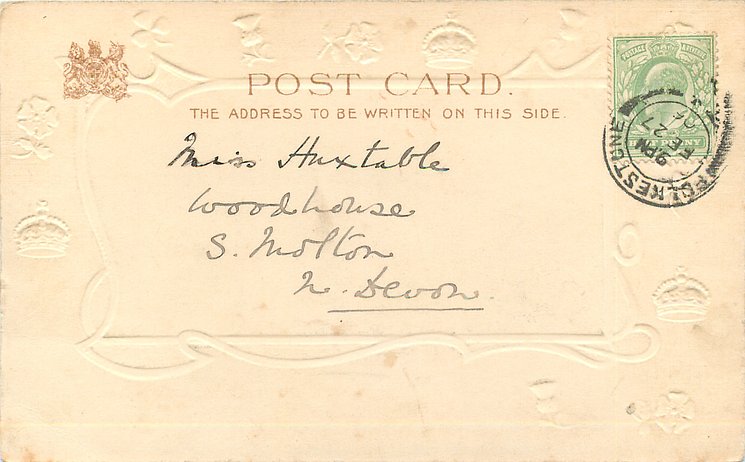 POST CARD.
THE ADDRESS TO BE WRITTEN ON THIS SIDE.
POSTAGE & REVENUE
FOLKESTONE
9 PM
FE 27
06
Miss Huxtable
Woodhouse
S. Molton
N. Devon.